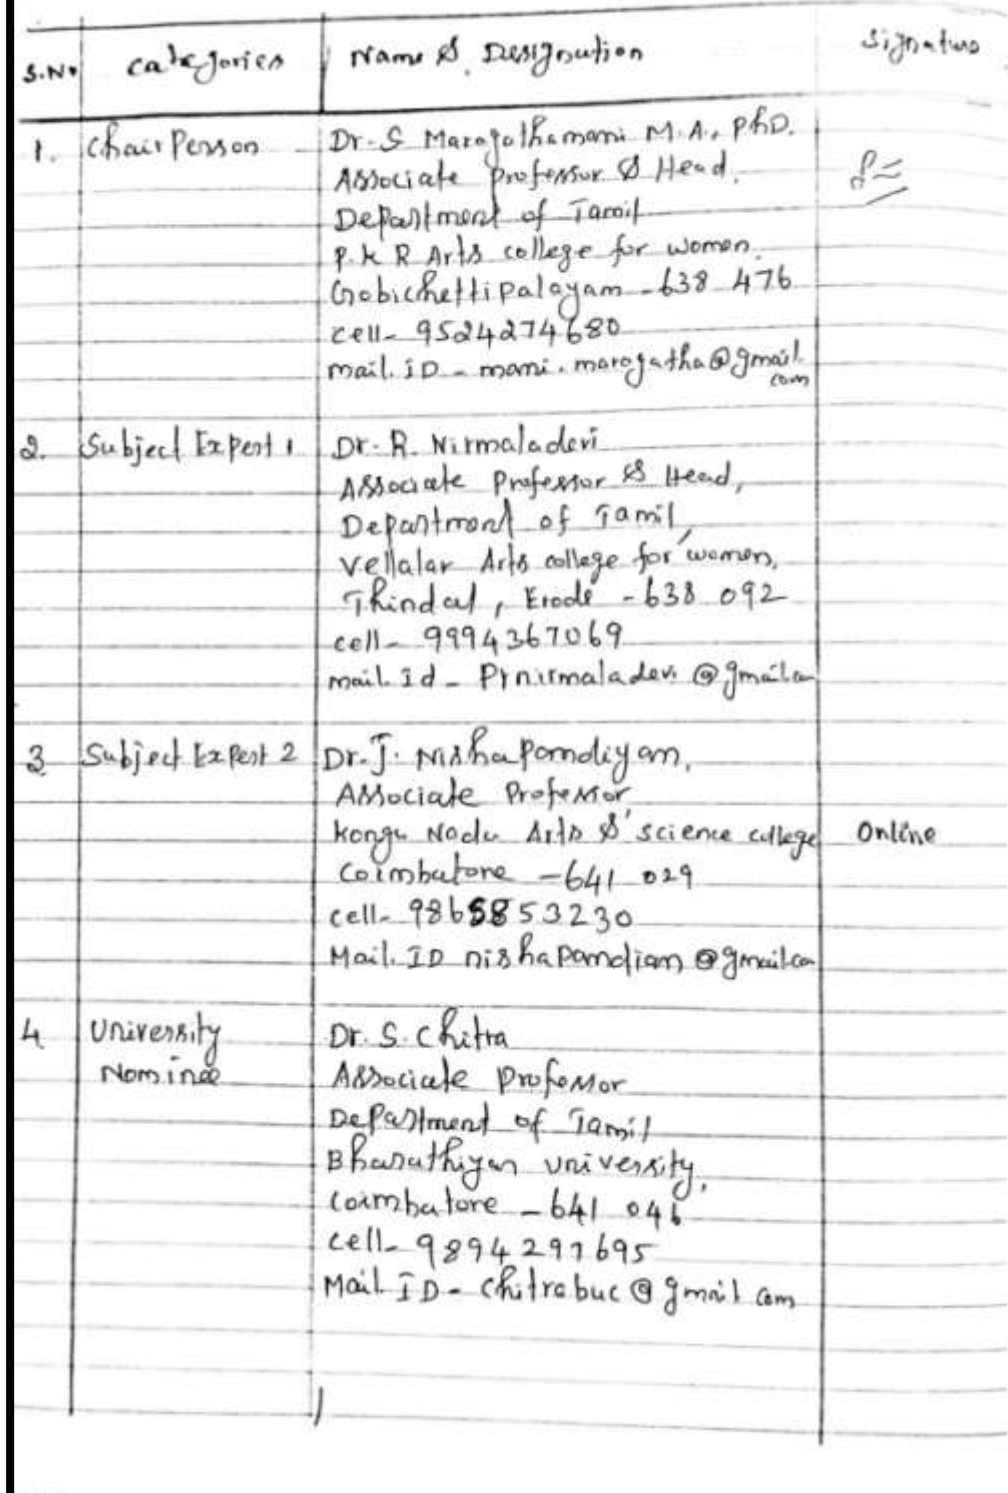 S.No Categories Name & Designation Signature
1. Chair Person Dr. S Maragathamani M.A., PhD.
Associate Professor & Head.
Department of Tamil
P.K R Arts college for women.
Gobichettipalayam - 638 476
cell - 9524274680
mail. ID - mani.maragatha@gmail.
com
2. Subject Expert 1 Dr. R. Nirmaladevi
Associate Professor & Head,
Department of Tamil,
Vellalar Arts college for women,
Thindal, Erode - 638 092
cell - 9994367069
mail. Id - Prnirmaladevi @gmail.com
3 Subject Expert 2 Dr. J. Nishapandiyan,
Associate Professor,
Kongu Nadu Arts & science college Online
Coimbatore - 641 029
cell - 9865853230
Mail. ID nishapandian @gmail.com
4 University Dr. S. Chitra
Nominee Associate Professor
Department of Tamil
Bharathiyar University,
Coimbatore - 641 046
cell - 9894297695
Mail ID - Chitrabuc@gmail com